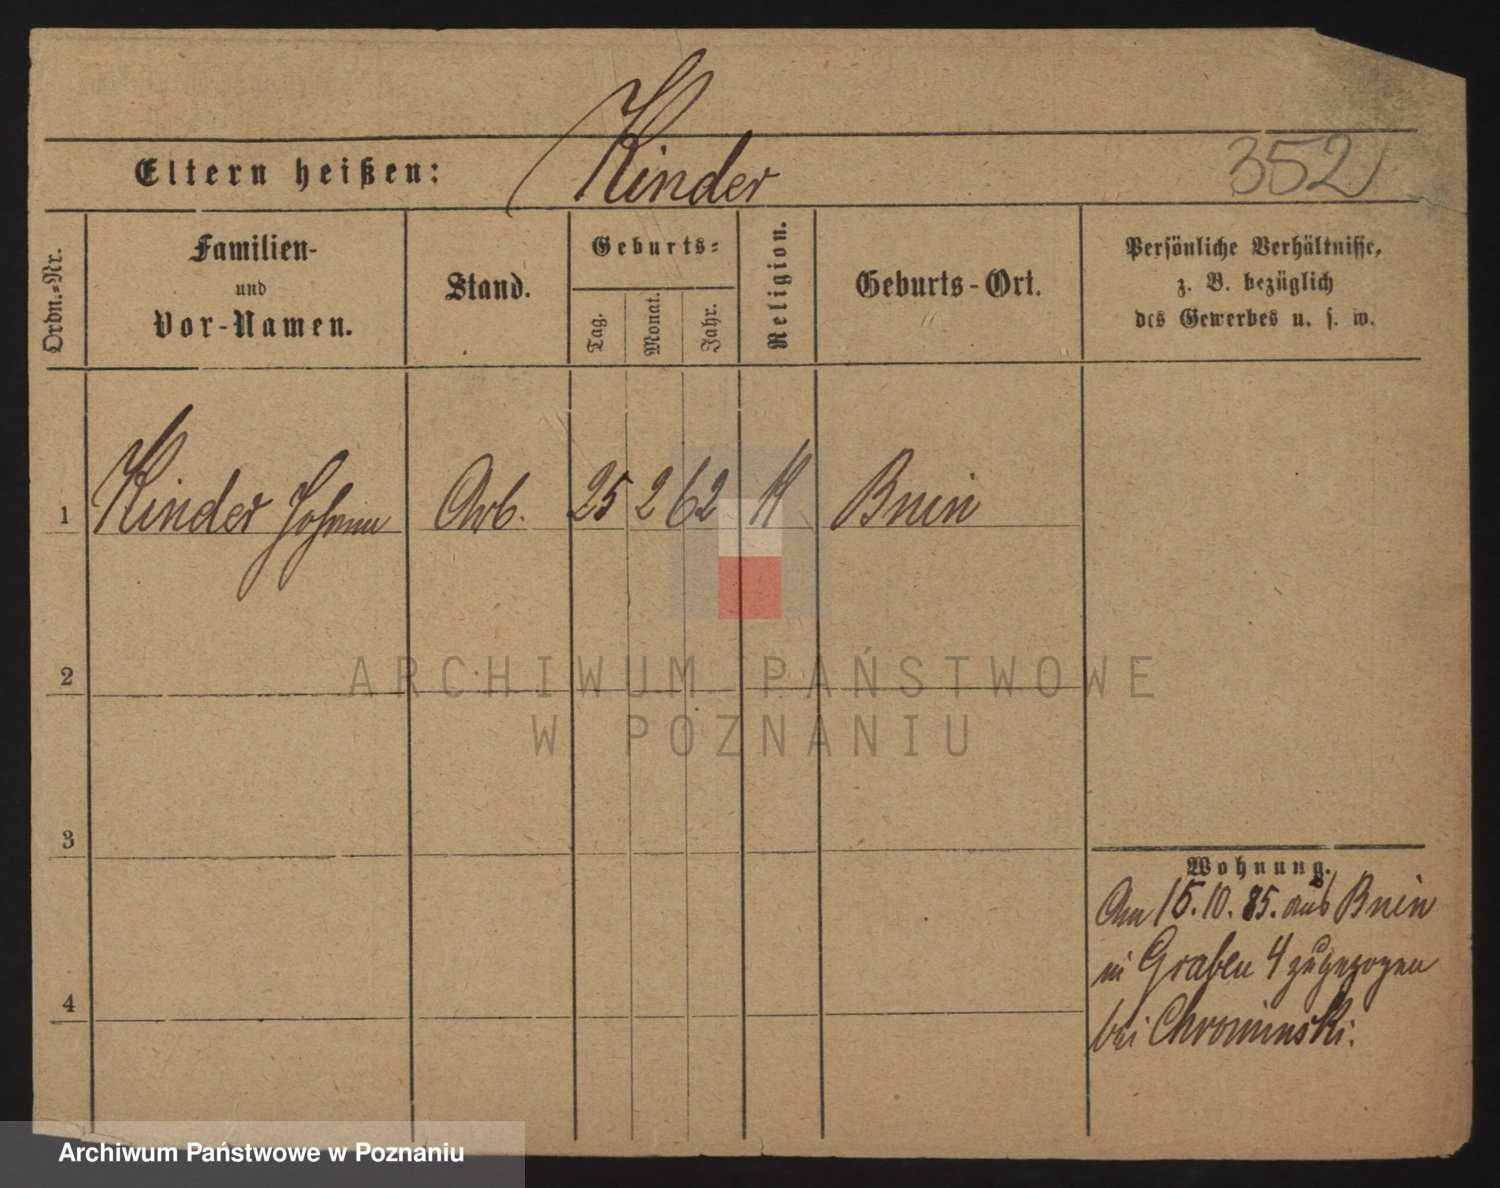 Kinder
Eltern heißen:
352
Ordn.=Nr.
Familien-
und
Vor-Namen.
Stand.
Geburts=
Tag.
Monat.
Jahr.
Religion.
Geburts-Ort.
Persönliche Verhältnisse,
z. B. bezüglich
des Gewerbes u. s. w.
1 Kinder Johann Arb. 25 2 62 K Bnin
2
3
4
Wohnung.
Am 15.10.85. aus Bnin
in Graben 4 zugezogen
bei Chrominski.
ARCHIWUM PAŃSTWOWE
W POZNANIU
Archiwum Państwowe w Poznaniu